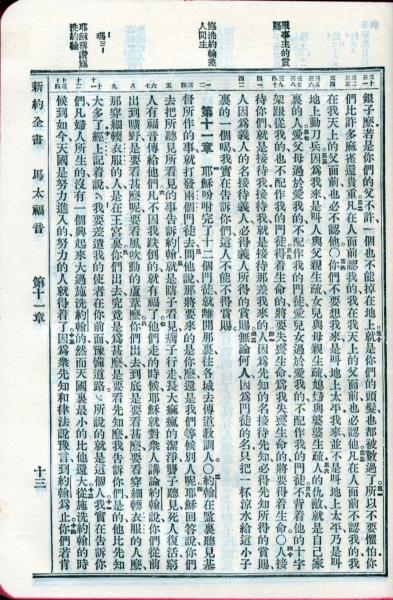 服事主的賞賜
施洗約翰差人問主
瑪三一
耶穌稱讚施洗約翰
銀子麽若是你們的父不許一個也不能掉在地上就是你們的頭髮也都被數過了所以不要懼怕你
們比許多麻雀還貴重凡在人面前認我的我在我天上的父面前也必認他在人面前不認我的我
在我天上的父面前也必不認他○你們不要想我來是叫地上太平我來並不是叫地上太平乃是叫
地上動刀兵因爲我來是叫人與父親生疏女兒與母親生疏媳婦與婆婆生疏人的仇敵就是自己家
裏的人愛父母過於愛我的不配作我的門徒愛兒女過於愛我的不配作我的門徒不背着他的十字
架跟從我的也不配作我的門徒得着生命的將要失喪生命爲我失喪生命的將要得着生命○人接
待你們就是接待我接待我就是接待那差我來的人因爲先知的名接待先知必得先知所得的賞賜
人因爲義人的名接待義人必得義人所得的賞賜無論何人因爲門徒的名只把一杯涼水給這小子
裏的一個喝我實在告訴你們這人不能不得賞賜
第十一章 耶穌吩咐完了十二個門徒就離開那裏往各城去傳道教訓人○約翰在監裏聽見基
督所作的事就打發兩個門徒去問他說那將要來的是你麽還是我們等候別人呢耶穌回答說你們
去把所聽見所看見的事告訴約翰就是瞎子看見瘸子行走長大痲瘋的潔淨聾子聽見死人復活窮
人有福音傳給他們凡不因我跌倒的就有福了他們走的時候耶穌就對衆人講論約翰說你們從前
出到曠野是要看甚麽呢要看風吹動的蘆葦麽你們出去到底是要看甚麽要看穿細輭衣服的人麽
那穿細輭衣服的人是在王宮裏你們出去究竟是爲甚麽是要看先知麽我告訴你們是的他比先知
大多了經上記着說我要差遣我的使者在你前面豫備道路所說的就是這個人我實在告訴你
們凡婦人所生的沒有一個興起來大過施洗約翰的然而天國裏最小的比他還大從施洗約翰的時
候到如今天國是努力進入的努力的人就得着了因爲衆先知和律法說豫言到約翰爲止你們若肯
新約全書 馬太福音 第十一章 十三